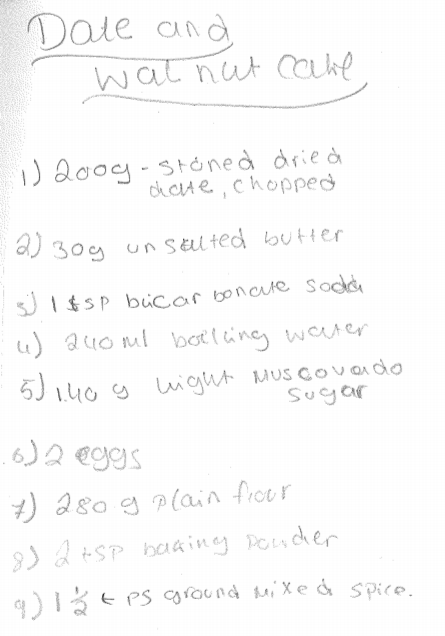 Date and
walnut cake
1) 200g - stoned dried
date, chopped
2) 30g unsalted butter
3) 1 tsp bicarbonate soda
4) 240 ml boiling water
5) 140 g light Muscovado
Sugar
6) 2 eggs
7) 280 g plain flour
8) 2 tsp baking powder
9) 1 1/2 tps ground mixed spice.